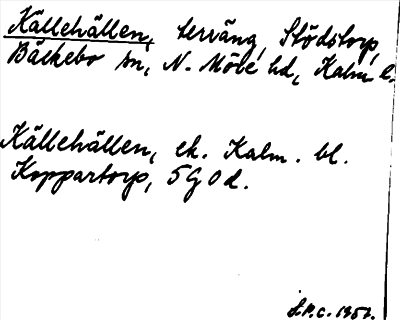 Källehällen, terräng, Stödstorp,
Bäckebo sn, N. Möre hd, Kalm. l.
Källehällen, ek. Kalm. bl.
Koppartorp, 5 G 0 d.
1957.